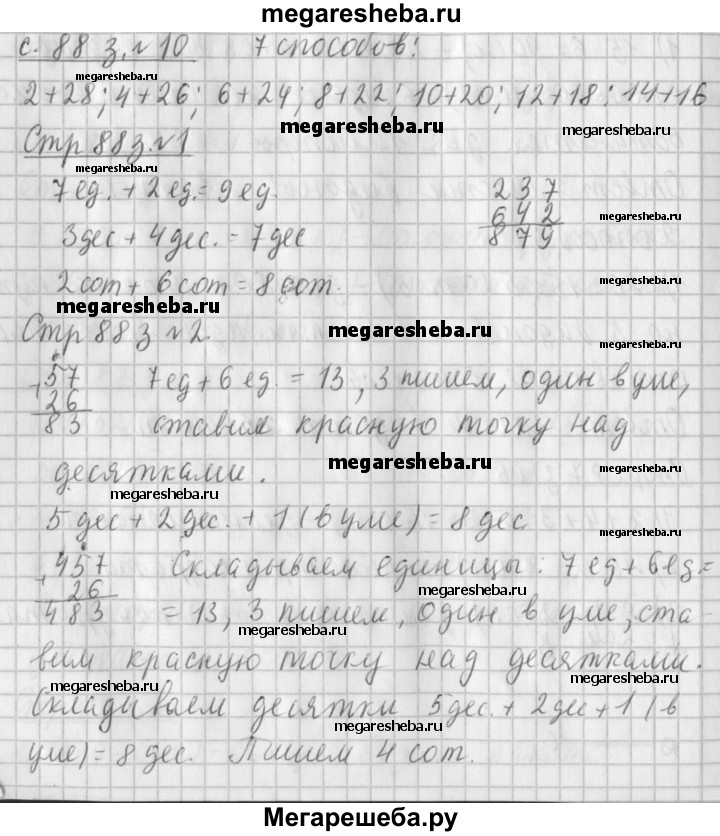 megaresheba.ru
с. 88 з. № 10 7 способов:
megaresheba.ru megaresheba.ru
2+28; 4+26; 6+24; 8+22; 10+20; 12+18; 14+16
megaresheba.ru megaresheba.ru
Стр 88 з. № 1
megaresheba.ru
7 ед. + 2 ед. = 9 ед. 237
642 megaresheba.ru
3 дес + 4 дес. = 7 дес 879
2 сот + 6 сот = 8 сот. megaresheba.ru
megaresheba.ru
Стр 88 з № 2. megaresheba.ru megaresheba.ru
57 7 ед + 6 ед. = 13; 3 пишем, один в уме,
+26 megaresheba.ru
83 ставим красную точку над
десятками. megaresheba.ru megaresheba.ru
megaresheba.ru
5 дес + 2 дес. + 1 (в уме) = 8 дес. megaresheba.ru
457 Складываем единицы: 7 ед + 6 ед. =
+26 megaresheba.ru
483 = 13, 3 пишем, один в уме, ста-
megaresheba.ru
вим красную точку над десятками.
megaresheba.ru megaresheba.ru
Складываем десятки 5 дес. + 2 дес + 1 (в
megaresheba.ru
уме) = 8 дес. Пишем 4 сот.
Мегарешеба.ру